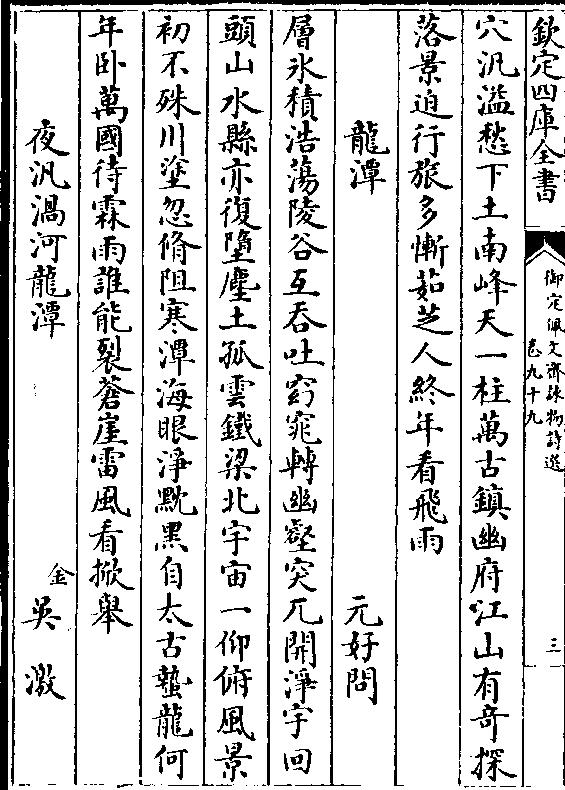 欽定四庫全書
御定佩文齋詠物詩選
卷九十九
三
穴汎濫愁下土南峰天一柱萬古鎮幽府江山有奇探
落景迫行旅多慚茹芝人終年看飛雨
龍潭 元好問
層氷積浩蕩陵谷互吞吐窈窕轉幽壑突兀開淨宇回
頭山水縣亦復墮塵土孤雲鐵梁北宇宙一仰俯風景
初不殊川塗忽脩阻寒潭海眼淨黕黒自太古蟄龍何
年卧萬國待霖雨誰能裂蒼崖雷風看掀舉
夜汎渦河龍潭 金吳激